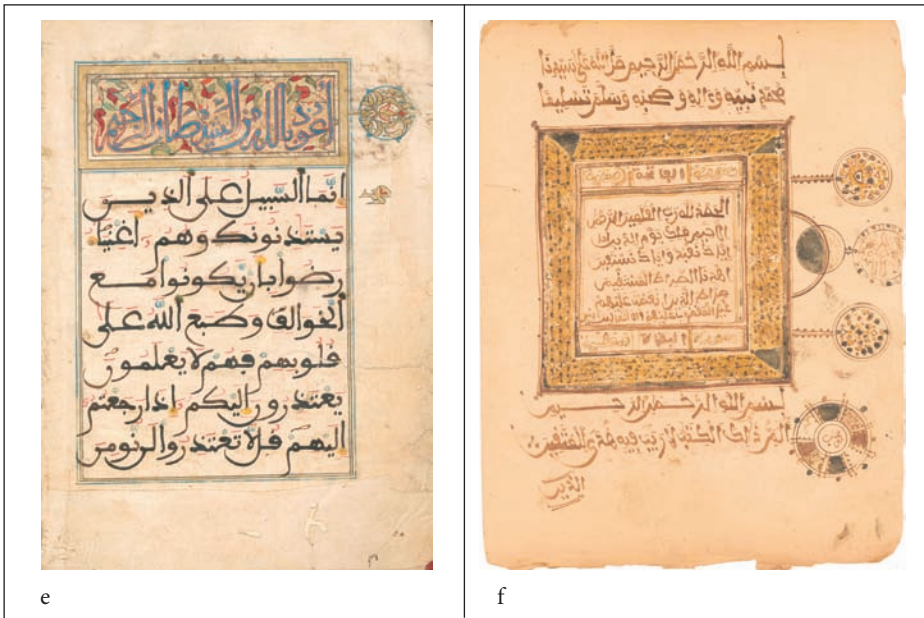 أعوذ بالله من الشيطان الرجيم
إنما السبيل على الذين
يستذنونك وهم أغنياء
رضوا بأن يكونوا مع
الخوالف وطبع الله على
قلوبهم فهم لا يعلمون
يعتذرون إليكم إذا رجعتم
إليهم قل لا تعتذروا لن نومن
e
بسم الله الرحمن الرحيم صلى الله على سيدنا
محمد نبيه وءاله وصحبه وسلم تسليما
الحمد لله رب العلمين الرحمن
الرحيم ملك يوم الدين
إياك نعبد وإياك نستعين
اهدنا الصراط المستقيم
صراط الذين أنعمت عليهم
غير المغضوب عليهم ولا الضالين
بسم الله الرحمن الرحيم
الم ذلك الكتب لا ريب فيه هدى للمتقين
الذين
f